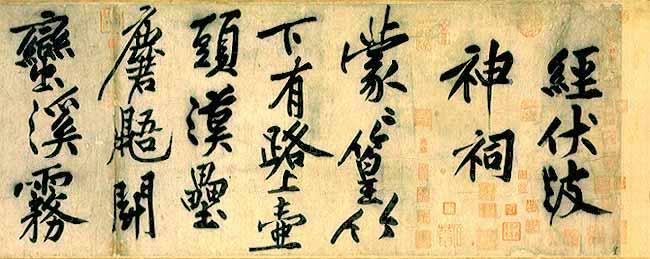 經伏波
神祠
蒙〻篁竹
下有路上壺
頭漢壘
麏鼯鬥
蠻溪霧